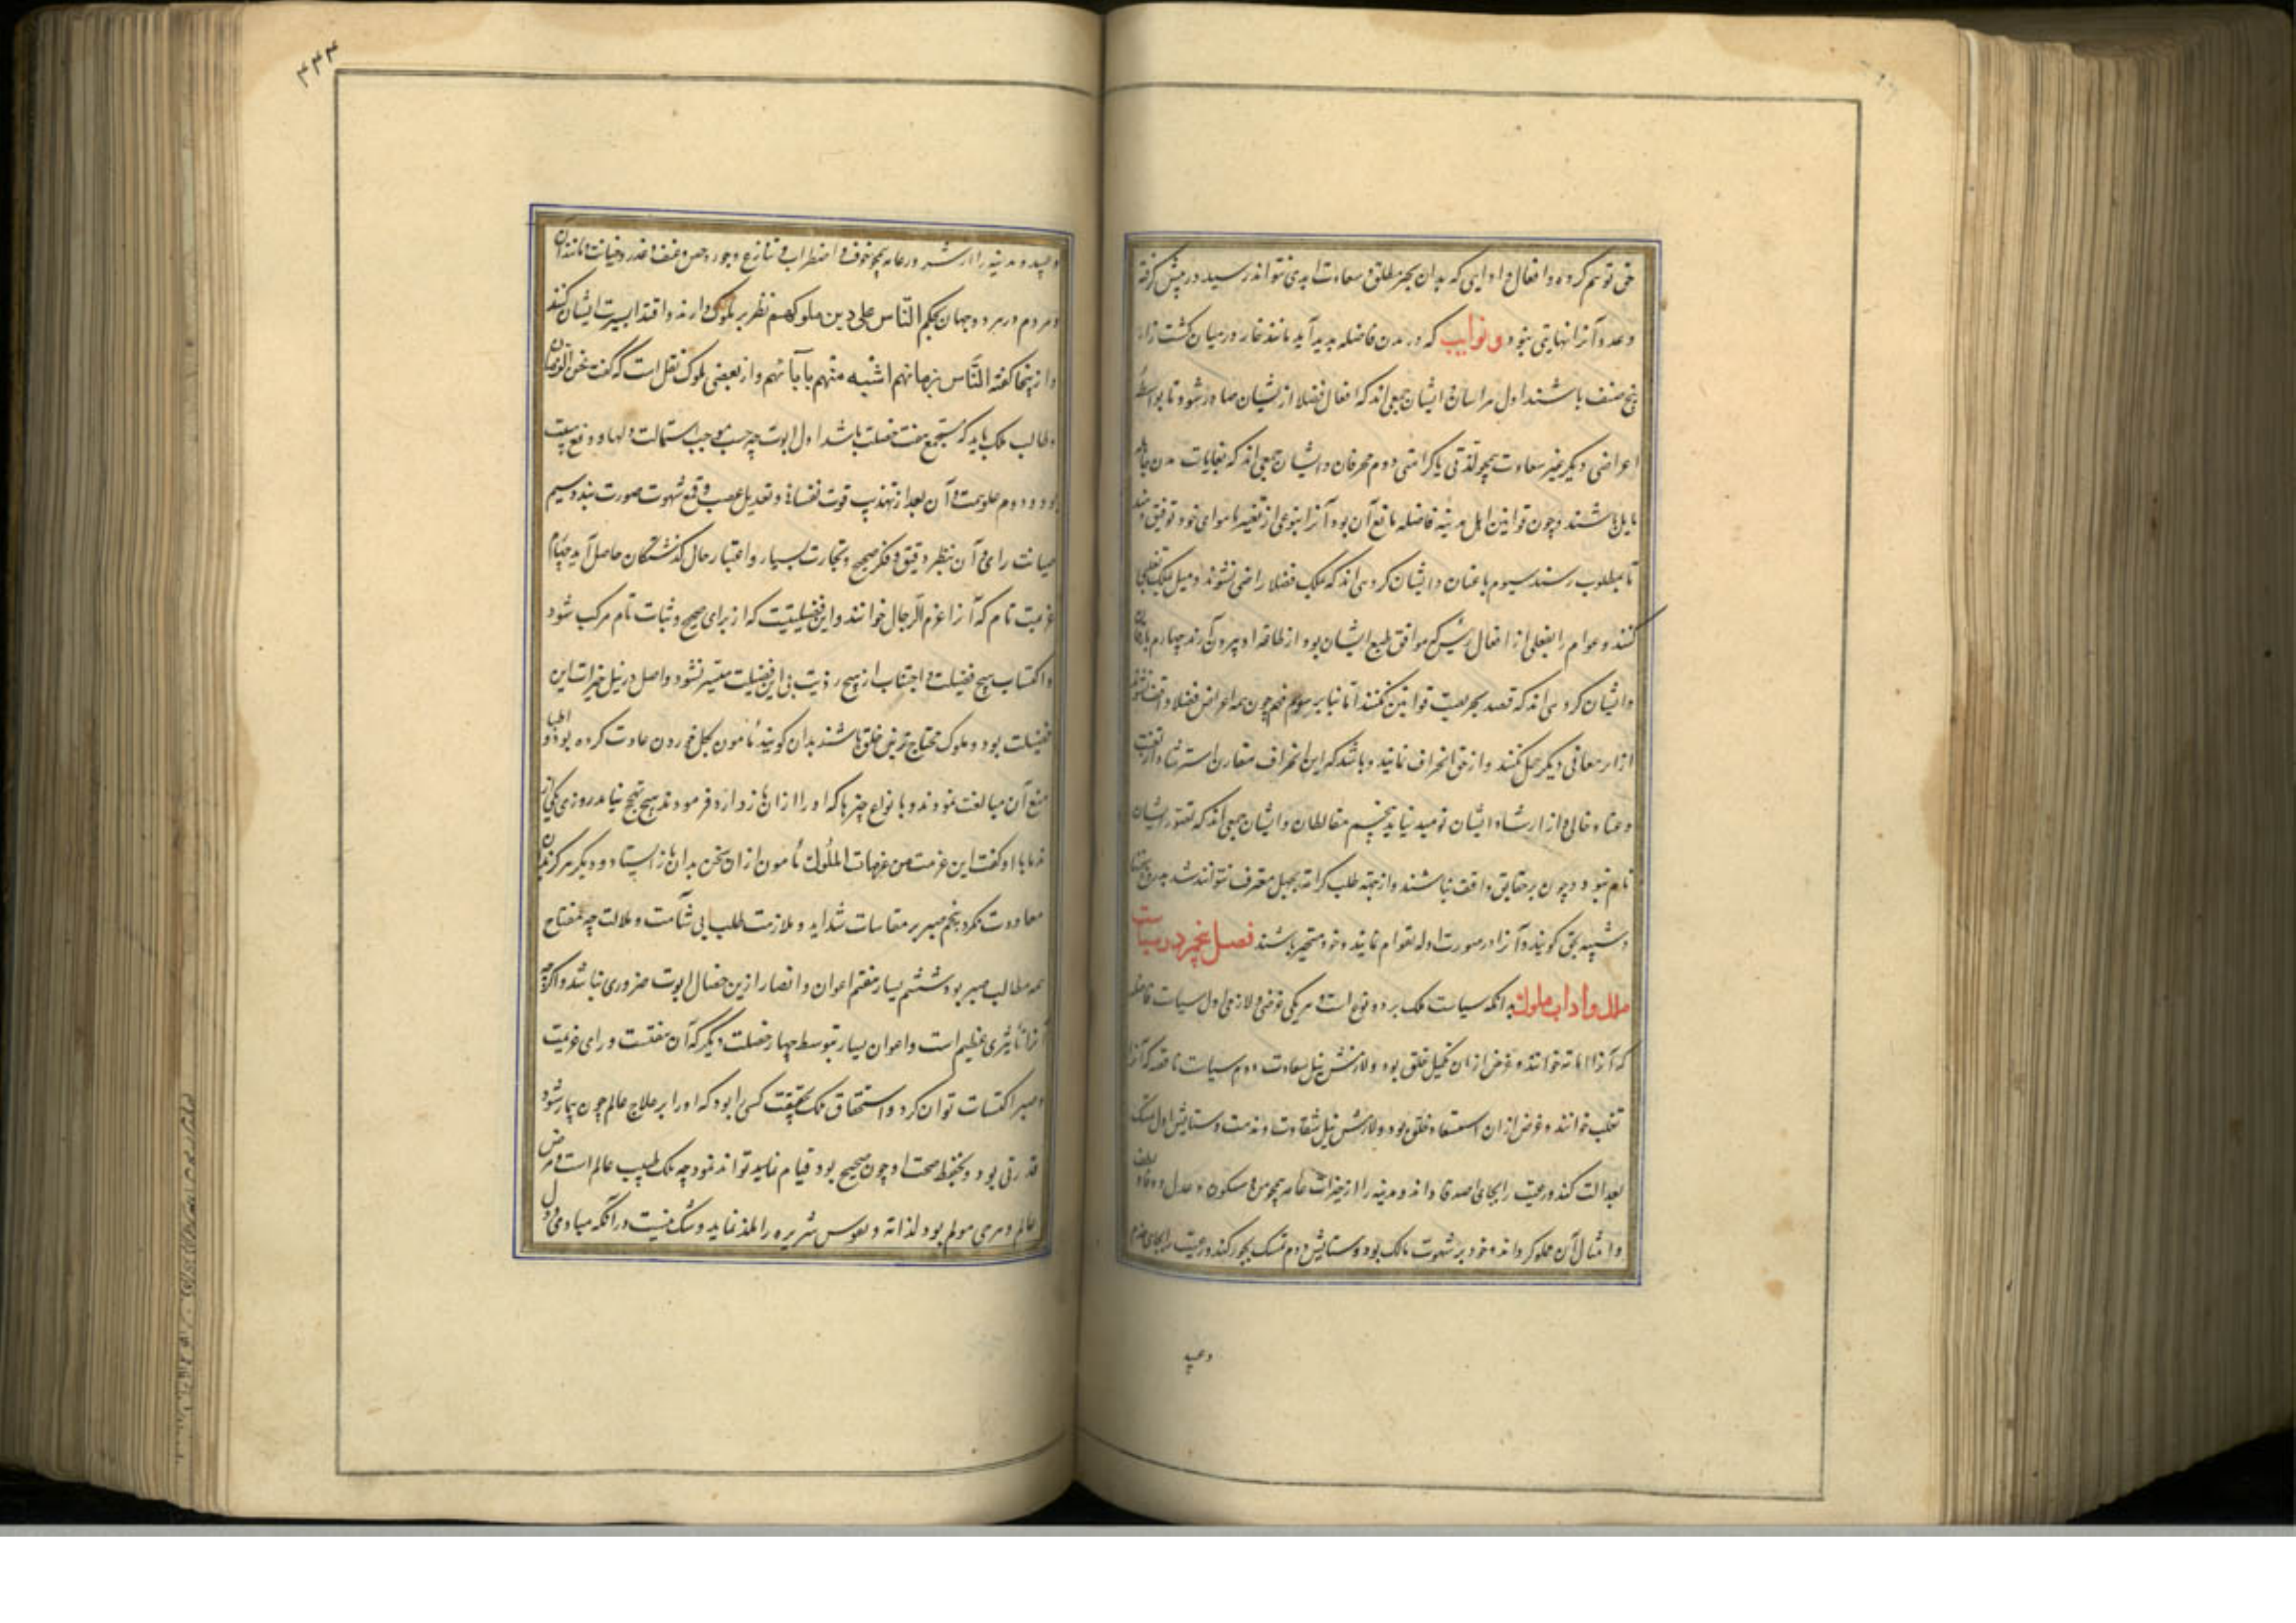 حق توسم کرده و افعال و ارایی که بدان بخیر مطلق و سعادت ابدی نتواند رسید در پیش گرفته
و عدد آنرا نهایتی نبود و نوابت که در مدن فاضله پدید آید مانند خار در میان کشت زار
پنج صنف باشند اول مرائیان و ایشان جمعی‌اند که افعال فضلا از ایشان صادر شود تا بواسطه
اعراضی دیگر غیر سعادت همچو لذتی یا کرامتی دوم محرفان و ایشان جمعی‌اند که بغایات مدن جاهله
مایل باشند و چون قوانین اهل مدینه فاضله مانع آن بود آنرا بنوعی از تغییر با هوای خود توفیق دهند
تا بمطلوب رسند سیوم باغیان و ایشان گروهی‌اند که بملک فضلا راضی نشوند و میل بملک تغلبی
کنند و عوام را بفعلی از افعال رئیس که موافق طبع ایشان بود از طاعت او بیرون آرند چهارم مارقان
و ایشان گروهی‌اند که قصد تحریف قوانین نکنند اما بنابر سوء فهم چون بر اعراض فضلا واقف نشوند
آنرا بر معانی دیگر حمل کنند و از حق انحراف نمایند و باشد که این انحراف مقارن استرشاد و از تعنت
و عناد خالی و از ارشاد ایشان نومید نباید پنجم مغالطان و ایشان جمعی‌اند که تصور ایشان
تام نبود و چون بر حقایق واقف نباشند و از جهة طلب کرامت بجهل معترف نتوانند شد بدروغ سخنان
شبیه بحق گویند و آنرا در صورت ادله بعوام نمایند و خود متحیر باشند فصل پنجم در سیاست
ملل و اداب ملوک بدانکه سیاست ملک بر دو نوع است و هر یکی غرضی و لازمی اول سیاست فاضله
که آنرا امامت خوانند و غرض از ان تکمیل خلق بود و لازمش نیل سعادت دوم سیاست ناقصه که آنرا
تغلب خوانند و غرض از ان استعباد خلق بود و لازمش نیل شقاوت و مذمت و سایس اول تمسک
بعدالت کند و رعیت را بجای اصدقا داند و مدینه را از خیرات عامه همچو امن و سکون و عدل و وفا و لطف
و امثال آن مملو کرداند و خود بر شهوت مالک بود و سایس دوم تمسک بجور کند و رعیت را بجای خدم
وعبید
۴۴۴
و عبید و مدینه را از شرور عامه همچو خوف و اضطراب و تنازع و جور و حرص و عنف و غدر و خیانت و مانند آن
و مردم در هر دو جهان بحکم الناس علی دین ملوکهم نظر بر ملوک دارند و اقتدا بسیرت ایشان کنند
و از ینجا گفته الناس بزمانهم اشبه منهم بآبائهم و از بعضی ملوک نقل است که گفت نحن الزمان
و طالب ملک باید که مستجمع هفت خصلت باشد اول ابوت چه حسب موجب استمالت دلها و وقع هیبت
بود و دوم علو همت و آن بعد از تهذیب قوت نفسانی و تعدیل غضب و قمع شهوت صورت بندد سیم
متانت رای و آن بنظر دقیق و فکر صحیح و تجارب بسیار و اعتبار حال گذشتگان حاصل آید چهارم
عزیمت تام که آنرا عزم الرجال خوانند و این فضیلیتیست که از رای صحیح و ثبات تام مرکب شود
و اکتساب هیچ فضیلت و اجتناب از هیچ رذیلت بی این فضیلت متیسر نشود و اصل در نیل خیرات این
فضیلت بود و ملوک محتاج‌ترین خلق باشند بدان گویند مأمون بگل خوردن عادت کرده بود و اطبا
منع آن مبالغت نمودند و بانواع چیزها که او را از ان باز دارد فرمودند هیچ نجح نیامد روزی یکی از
ندما با او گفت این عزمت من عزمات الملوک مأمون از ان سخن بدان باز ایستاد و دیگر هرگز بدان
معاودت نکرد پنجم صبر بر مقاسات شداید و ملازمت طلب بی سآمت و ملالت چه مفتاح
همه مطالب صبر بود ششم یسار هفتم اعوان و انصار ازین خصال ابوت ضروری نباشد و اگرچه
آنرا تأثیری عظیم است و اعوان و یسار بتوسط چهار خصلت دیگر که آن همتست و رای و عزیمت
و صبر اکتساب توان کرد و استحقاق ملک بحقیقت کسی را بود که او را بر علاج عالم چون بیمار شود
قدرتی بود و بحفظ صحت او چون صحیح بود قیام تواند نمود چه ملک طبیب عالم است و مرض